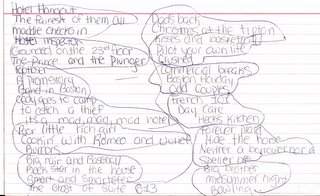 Hotel Hangout
The Fairest of them all
maddie checks in
Hotel inspector
Grounded on the 23rd floor
The Prince and the Plunger
Footloser
A Prom Story
Band in Boston
Cody goes to camp
to catch a thief
it's a mad, mad, mad hotel
Poor little rich girl
Cookin' with Romeo and Juliet
Rumors
Big hair and Baseball
Rock star in the house
Smart and Smarterer
The Ghost of Suite 613
Dad's back
Christmas at the Tipton
Kisses and basketball
Pilot your own life
Crushed
Commercial breaks
Boston Holiday
Odd Couples
French 101
Day Care
Heck's Kitchen
Forever Plaid
Hide the house
Neither a borrower nor a
Speller be
Big brother
Midsummer night
Bowling